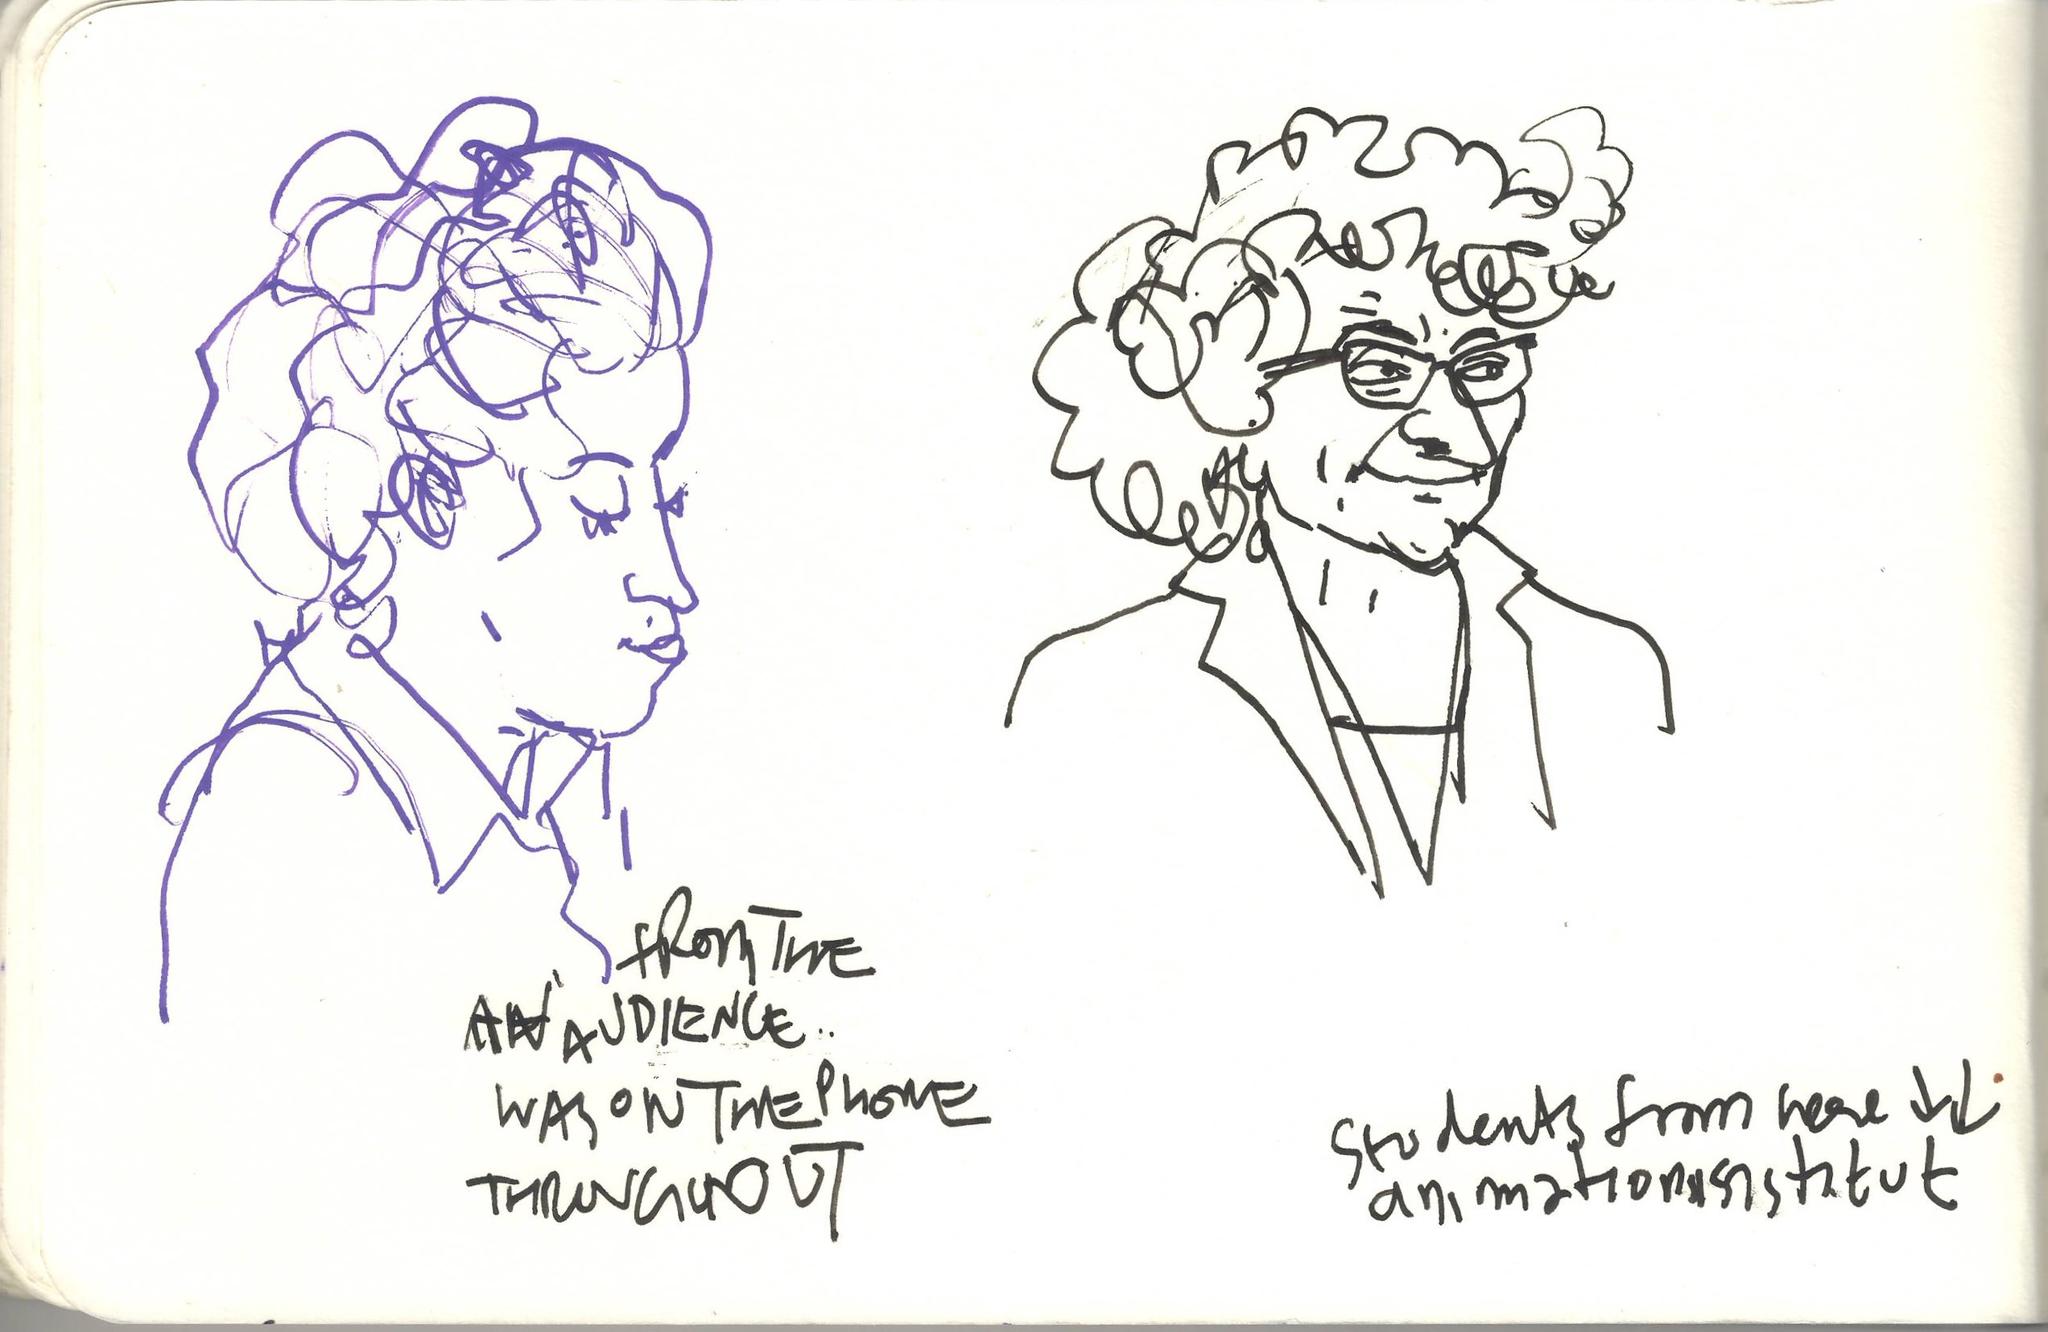 FROM THE
AUDIENCE..
WAS ON THE PHONE
THROUGHOUT
students from
animationsistitut